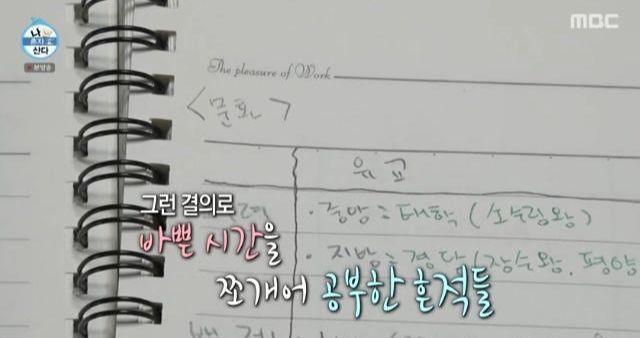 나
혼자
산다
본방송
MBC
The pleasure of Work
<문화>
유교
· 중앙 : 태학 (소수림왕)
· 지방 : 경당 (장수왕, 평양
그런 결의로
바쁜 시간을
쪼개어 공부한 흔적들